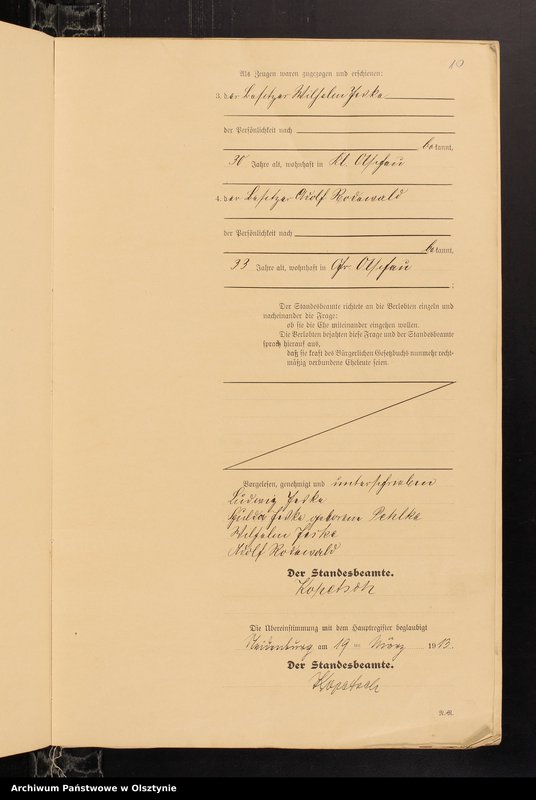 10
Als Zeugen waren zugezogen und erschienen:
3. der Besitzer Wilhelm Jeske
der Persönlichkeit nach
bekannt,
30 Jahre alt, wohnhaft in Kl. Olschau
4. der Besitzer Adolf Rodewald
der Persönlichkeit nach
bekannt,
33 Jahre alt, wohnhaft in Gr. Olschau
;
Der Standesbeamte richtete an die Verlobten einzeln und
nacheinander die Frage:
ob sie die Ehe miteinander eingehen wollen.
Die Verlobten bejahten diese Frage und der Standesbeamte
sprach hierauf aus,
daß sie kraft des Bürgerlichen Gesetzbuchs nunmehr recht-
mäßig verbundene Eheleute seien.
Vorgelesen, genehmigt und unterschrieben
Ludwig Jeske
Hulda Jeske geborene Pehlke
Wilhelm Jeske
Adolf Rodewald
Der Standesbeamte.
Kopetsch
Die Übereinstimmung mit dem Hauptregister beglaubigt
Neidenburg am 19 ten März 1913.
Der Standesbeamte.
Kopetsch
Archiwum Państwowe w Olsztynie